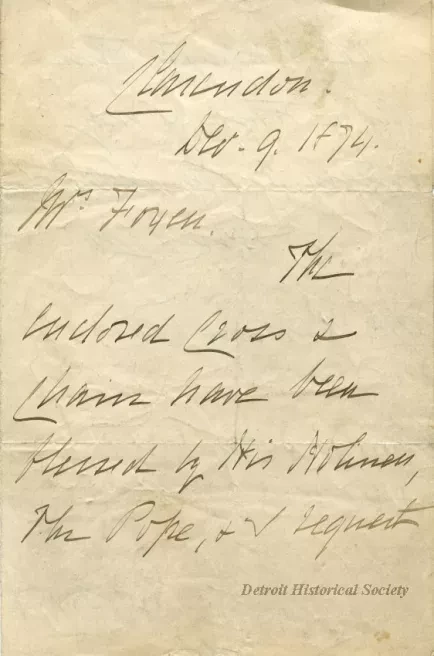 Clarendon.
Dec. 9. 1874.
Mrs Foyen.
The
enclosed Cross &
chain have been
blessed by His Holiness,
The Pope, & I request
Detroit Historical Society